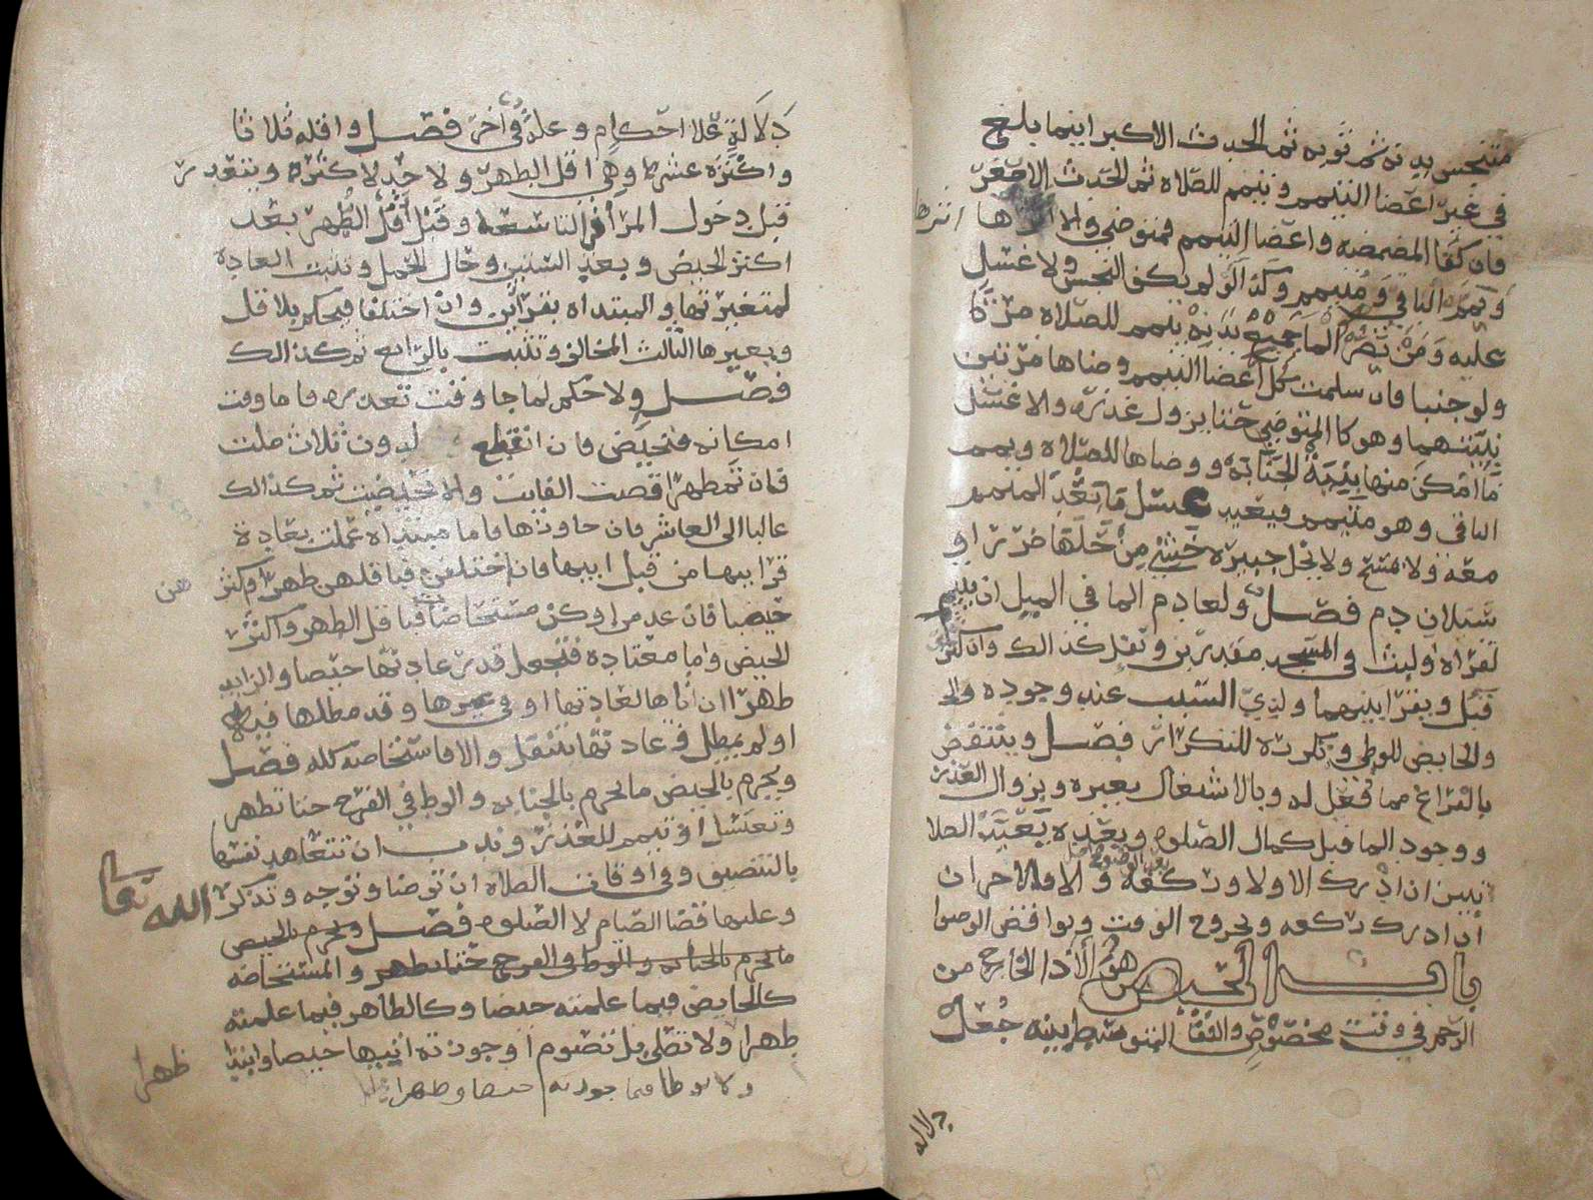 متنجس بدنه ثم ثوبه ثم الحدث الاكبر اينما بلغ
في غير اعضا التيمم وتيمم للصلاه ثم الحدث الاصغر
فان كفا المضمضه واعضا التيمم فمتوضي والا اثرها
ويمم الباقي ومتيمم وكذا لو لم يكف النجس ولا غسل
عليه ومن يضره الما جميع بدنه تيمم للصلاه مرتا
ولو جنبا فان سلمت كل اعضا التيمم وضاها مرتين
بنيتهما وهو كالمتوضي حتا يزول عذره والا غسل
ما امكن منها بنية الجنابة ووضاها للصلاه ويمم
الباقي وهو متيمم فيعيد غسل ما بعد الميمم
معه ولا يمسح ولا يحل جبيرة خشي من حلها ضررا او
سيلان دم فصل ولعادم الما في الميل ان يتيمم
لقراه او لبث في المسجد مقدرين ونفل كذالك وان كثر
قبل ويقرا بينهما ولذي السبب عند وجوده
والحايض للوطى وتكرره للتكرار فصل وينتقض
بالفراغ مما فعل له وبالاشتغال بغيره وبزوال العذر
ووجود الما قبل كمال الصلوه وبعده يعيد الصلا
تين ان ادرك الاولا وركعة والا فالاخرا ان
ان ادرك ركعه وبخروج الوقت ونواقض الوضوا
باب الحيض هو الاذا الخارج من
الرحم في وقت مخصوص والنقا المتوسط بينه جعل
دلاله
دلالة علا احكام وعلة في اخر فصل واقله ثلاثا
واكثره عشرا وهي اقل الطهر ولا حد لاكثره ويتعذر
قبل دخول المرأة التاسعه وقبل اقل الطهر بعد
اكثر الحيض وبعد الستين وحال الحمل وتثبت العادة
لمتغيرتها والمبتداه بقرأين وان اختلفا فيحكم بلاقل
ويغيرها الثالث المخالف وتثبت بالرابع ثم كذالك
فصل ولا حكم لما جا وقت تعذره فاما وقت
امكانه فتحيض فان انقطع لدون ثلاث صلت
فان تم طهرا قضت الفايت والا تحيضت ثم كذالك
غالبا الى العاشر فان جاوزها فاما مبتداه عملت بعادة
قرايبها من قبل ابيها فان اختلفن فباقلهن طهرا واكثر هن
حيضا فان عدمن او كن مستحاضات فباقل الطهر واكثر
الحيض واما معتاده فتجعل قدر عادتها حيضا والزايد
طهرا ان اتاها لعادتها او في غيرها وقد مطلها فيه
او لم يمطل وعادتها تنتقل والا فاستحاضه كله فصل
ويحرم بالحيض ما يحرم بالجنابه والوطي في الفرج حتا تطهر
وتغتسل او تيمم للعذر وندب ان تتعاهد نفسها
بالتنضيف وفي اوقات الصلاه ان توضا وتوجه وتذكر الله تعا
وعليها قضا الصيام لا الصلوه فصل ويحرم بالحيض
ما يحرم بالجنابه والوطي في الفرج حتا تطهر والمستحاضه
كالحايض فيما علمته حيضا وكالطاهر فيما علمته
طهرا ولا تصلي بل تصوم او جوزته انتهاء حيضا وابتدا طهرا
ولا توطا فيما جوزته حيضا وطهرا